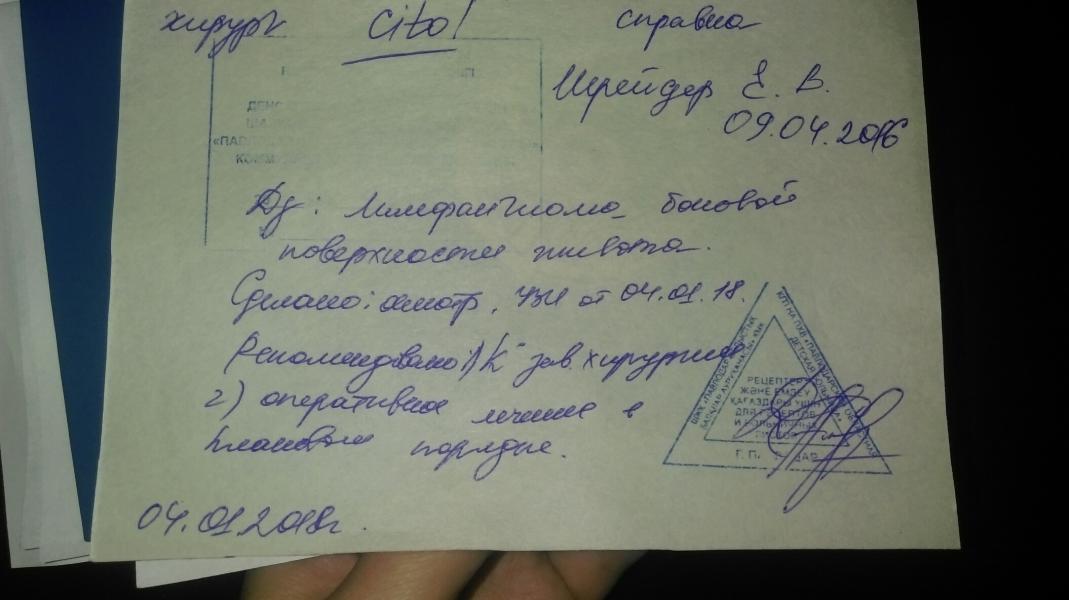 хирург Cito! справка
Шрейдер Е. В.
09.04.2016
«ПАВ
Ds: Лимфангиома боковой
поверхности живота.
Сделано: осмотр, УЗИ от 04.01.18.
Рекомендовано: 1) К зав. хирургией
2) оперативное лечение в
плановом порядке.
РЕЦЕПТЕР
ЖӘНЕ ЕМДЕУ
ҚАҒАЗДАРЫ ҮШІН
ДЛЯ РЕЦЕПТОВ
И БОЛЬНИЧНЫХ
04.01.2018г.